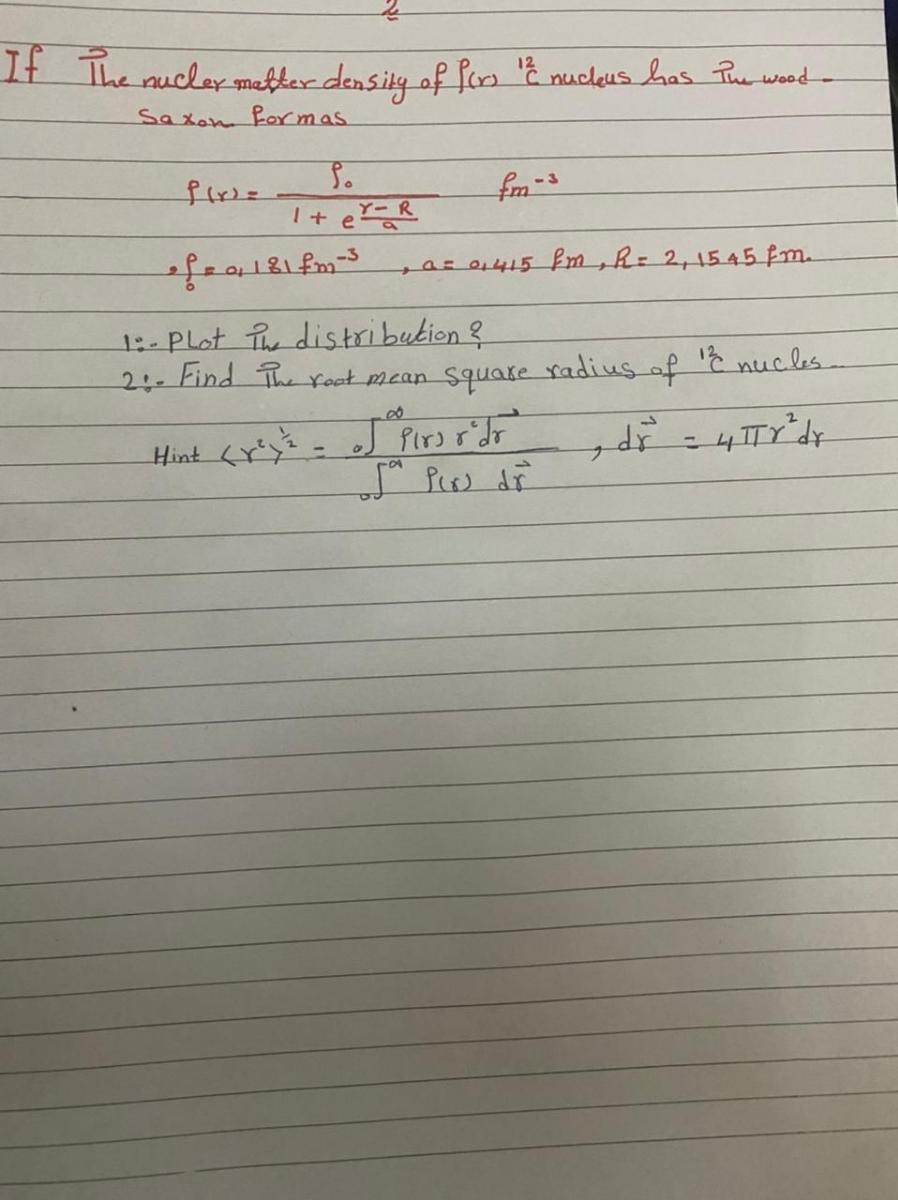 2
If The nucler matter density of ρ(r) ¹²C nucleus has The wood-
Saxon formas
ρ(r) = ρ₀ / (1 + e^((r-R)/a)) fm⁻³
, ρ₀ = 0,181 fm⁻³ , a = 0,415 fm , R = 2,1545 fm.
1:- Plot The distribution ?
2:- Find The root mean square radius of ¹²C nucles
Hint <r²>^(1/2) = ₀∫^∞ ρ(r) r² dr⃗ / ₀∫^∞ ρ(r) dr⃗ , dr⃗ = 4πr²dr